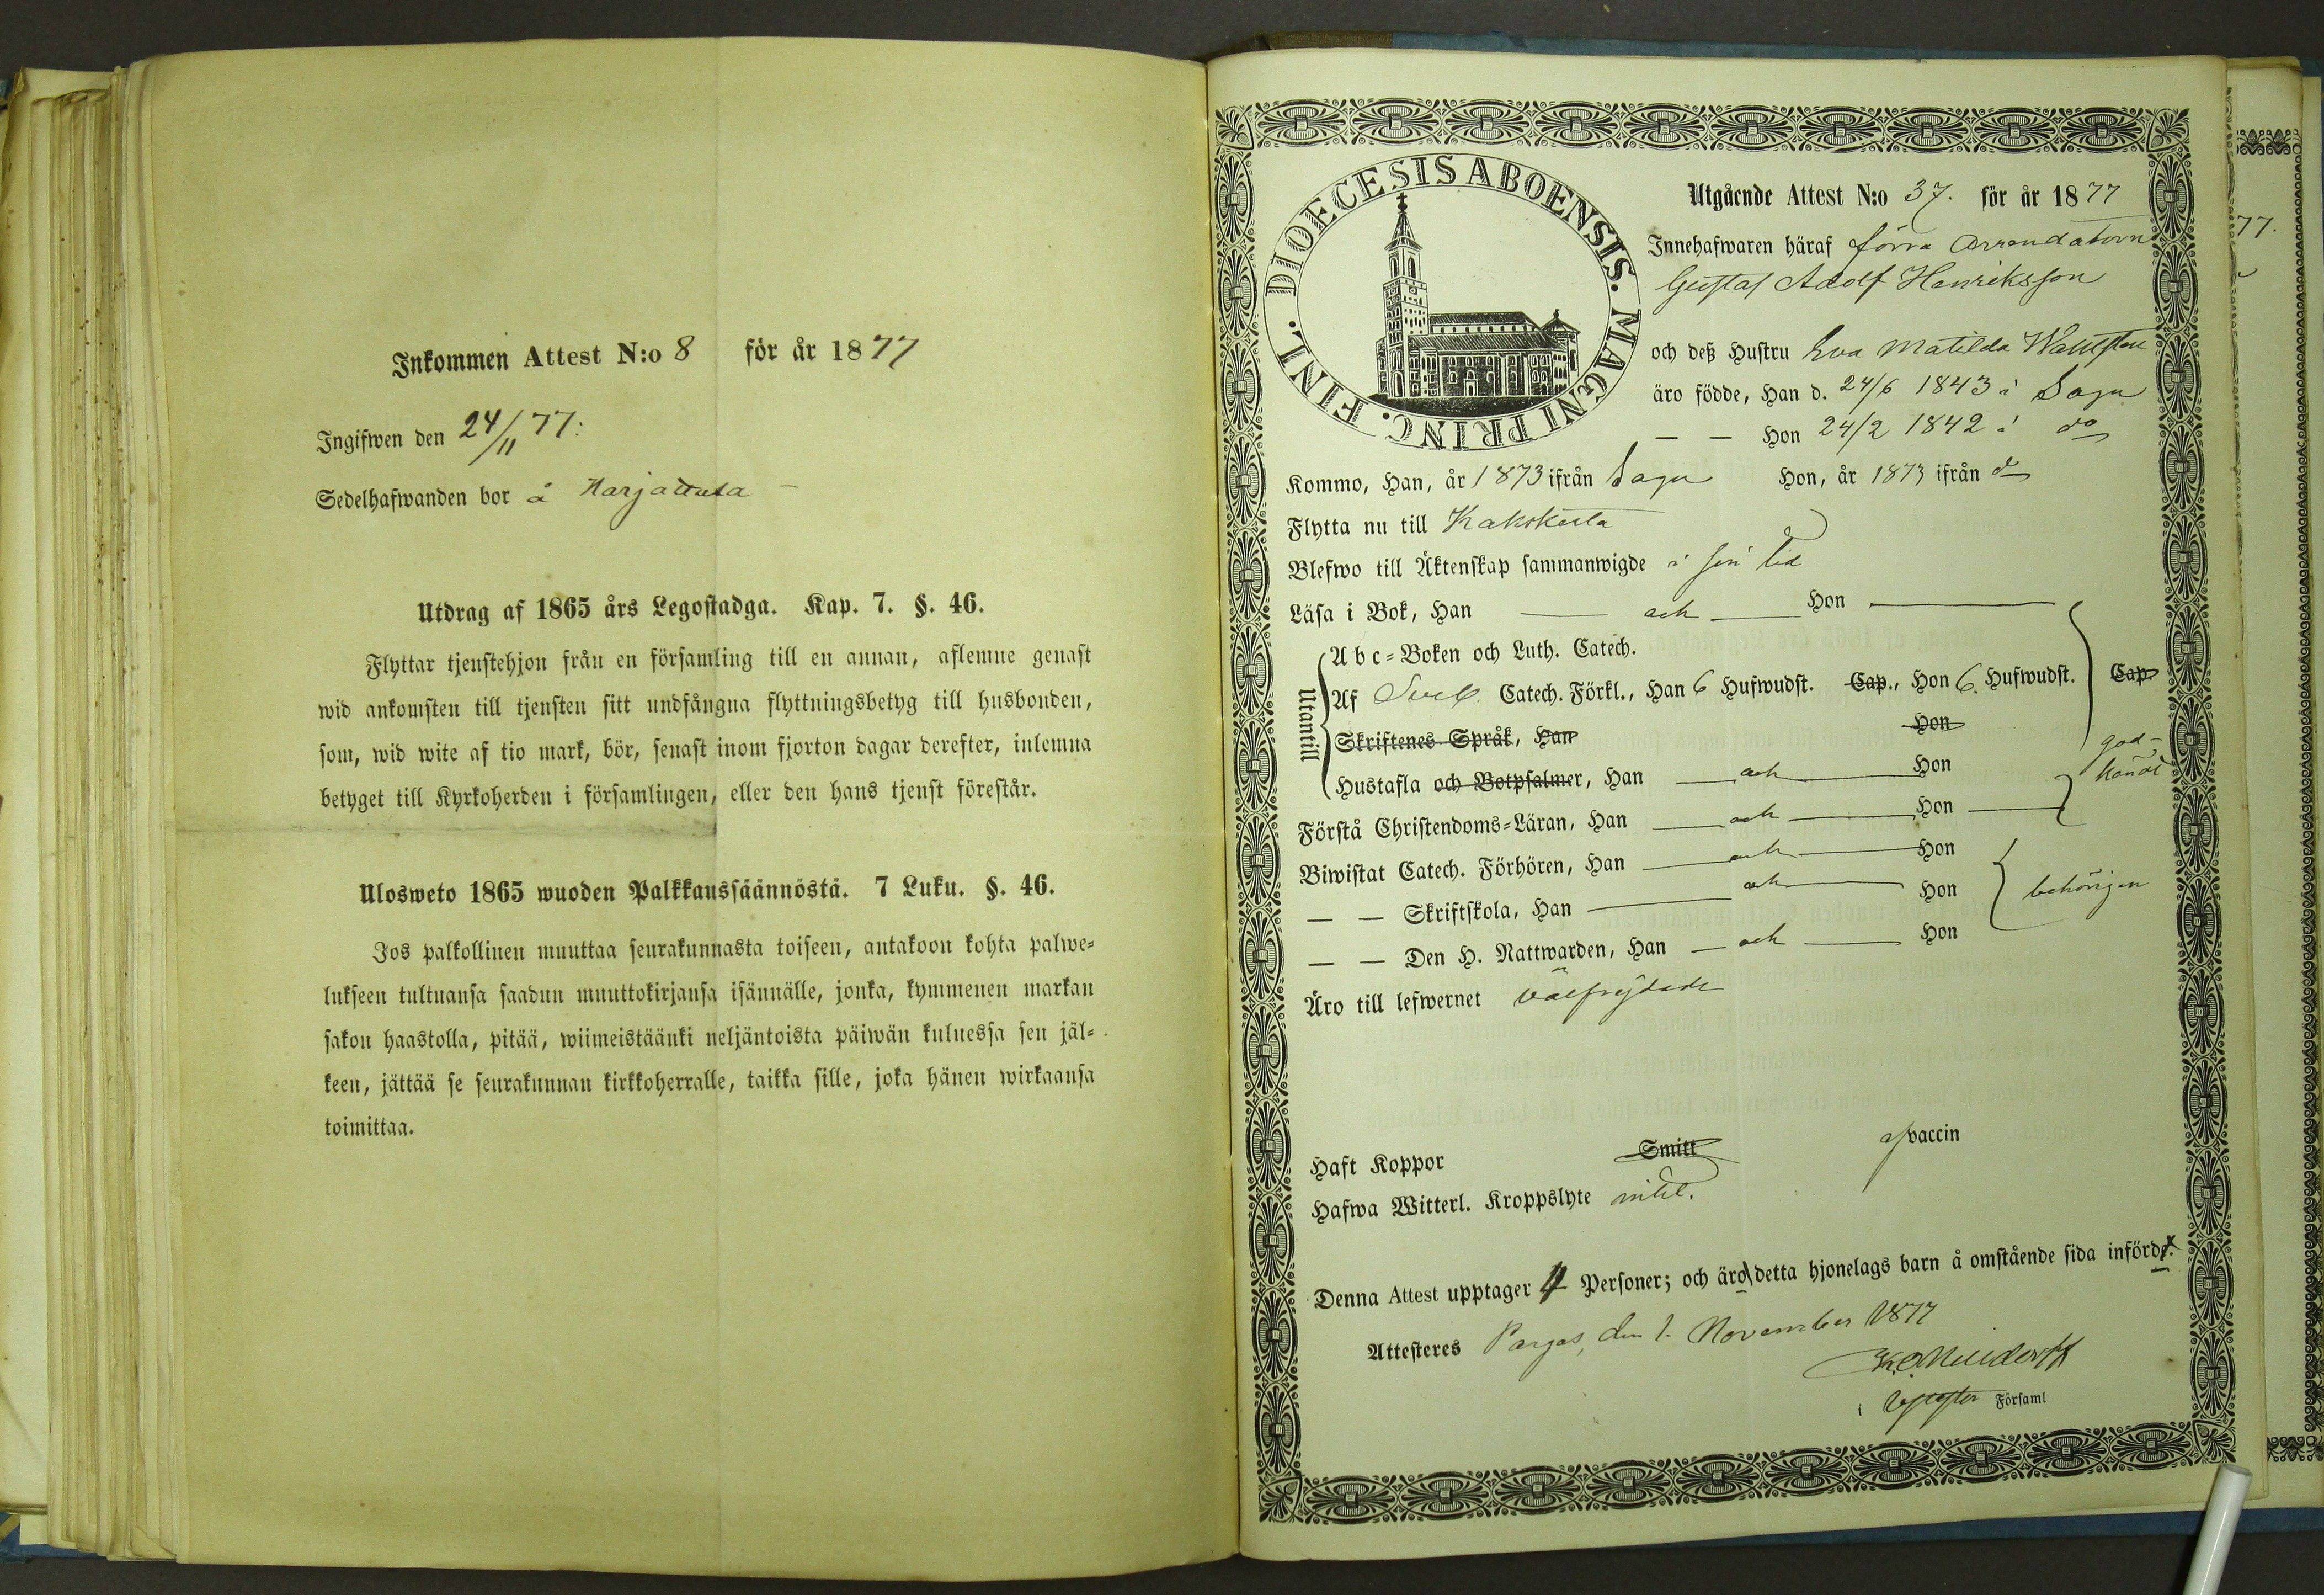 Inkommen Attest N:o 8 för år 1877
Ingifwen den 24/11 77:
Sedelhafwanden bor å Harjattula
Utdrag af 1865 års Legostadga. Kap. 7. §. 46.
Flyttar tjenstehjon från en församling till en annan, aflemne genast
wid ankomsten till tjensten sitt undfångna flyttningsbetyg till husbonden,
som, wid wite af tio mark, bör, senast inom fjorton dagar derefter, inlemna
betyget till Kyrkoherden i församlingen, eller den hans tjenst förestår.
Ulosweto 1865 wuoden Palkkaussäännöstä. 7 Luku. §. 46.
Jos palkollinen muuttaa seurakunnasta toiseen, antakoon kohta palwe=
lukseen tultuansa saadun muuttokirjansa isännälle, jonka, kymmenen markan
sakon haastolla, pitää, wiimeistäänki neljäntoista päiwän kuluessa sen jäl=
keen, jättää se seurakunnan kirkkoherralle, taikka sille, joka hänen wirkaansa
toimittaa.
DIOECESIS ABOENSIS. MAGNI PRINC. FINL.
Utgående Attest N:o 37. för år 1877
Innehafwaren häraf förra Arrendatorn
Gustaf Adolf Henriksson
och deß Hustru Eva Matilda Wahlsten
äro födde, Han d. 24/6 1843 i Sagu
— — Hon 24/2 1842 i do
Kommo, Han, år 1873 ifrån Sagu Hon, år 1873 ifrån do
Flytta nu till Kakskerta
Blefwo till Äktenskap sammanwigde i sin tid
Läsa i Bok, Han — och — Hon —
Utantill
A b c=Boken och Luth. Catech.
Af Sveb. Catech. Förkl., Han 6 Hufwudst. Cap., Hon 6. Hufwudst. Cap
Skriftenes Språk, Han Hon
Hustafla och Botpsalmer, Han — och — Hon
god-
känd
Förstå Christendoms=Läran, Han — och — Hon —
Biwistat Catech. Förhören, Han — och — Hon
— — Skriftskola, Han — och — Hon
behörigen
— — Den H. Nattwarden, Han — och — Hon
Äro till lefwernet välfrejdade
Haft Koppor Smitt af vaccin
Hafwa Witterl. Kroppslyte intet.
Denna Attest upptager 4 Personer; och äro detta hjonelags barn å omstående sida införde.
Attesteras Pargas, den 1. November 1877
i Församl
77.